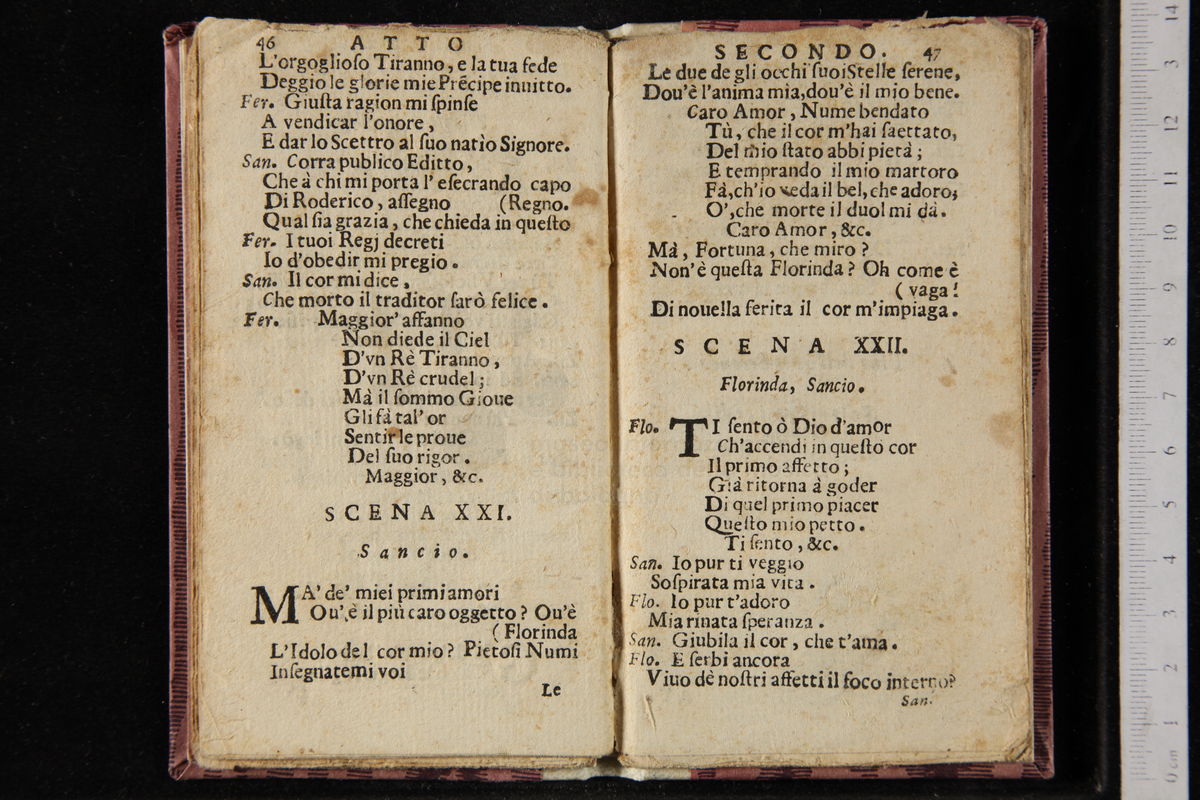 46 ATTO
L'orgoglioſo Tiranno, e la tua fede
Deggio le glorie mie Prẽcipe inuitto.
Fer. Giuſta ragion mi ſpinſe
A vendicar l'onore,
E dar lo Scettro al ſuo natìo Signore.
San. Corra publico Editto,
Che à chi mi porta l' eſecrando capo
Di Roderico, aſſegno (Regno.
Qual ſia grazia, che chieda in queſto
Fer. I tuoi Regj decreti
Io d'obedir mi pregio.
San. Il cor mi dice,
Che morto il traditor ſarò felice.
Fer. Maggior' affanno
Non diede il Ciel
D'vn Rè Tiranno,
D'vn Rè crudel;
Mà il ſommo Gioue
Gli fà tal' or
Sentir le proue
Del ſuo rigor.
Maggior, &c.
SCENA XXI.
Sancio.
MA' de' miei primi amori
Ou' è il più caro oggetto? Ou'è
(Florinda
L'Idolo del cor mio? Pietoſi Numi
Inſegnatemi voi
Le
SECONDO. 47
Le due de gli occhi ſuoi Stelle ſerene,
Dou'è l'anima mia, dou'è il mio bene.
Caro Amor, Nume bendato
Tù, che il cor m'hai ſaettato,
Del mio ſtato abbi pietà;
E temprando il mio martoro
Fà, ch'io veda il bel, che adoro;
O', che morte il duol mi dà.
Caro Amor, &c.
Mà, Fortuna, che miro?
Non'è queſta Florinda? Oh come è
(vaga!
Di nouella ferita il cor m'impiaga.
SCENA XXII.
Florinda, Sancio.
Flo. TI ſento ò Dio d'amor
Ch'accendi in queſto cor
Il primo affetto;
Già ritorna à goder
Di quel primo piacer
Queſto mio petto.
Ti ſento, &c.
San. Io pur ti veggio
Soſpirata mia vita.
Flo. Io pur t'adoro
Mia rinata ſperanza.
San. Giubila il cor, che t'ama.
Flo. E ſerbi ancora
Viuo dè noſtri affetti il foco interno?
San.
0 cm 1 2 3 4 5 6 7 8 9 10 11 12 13 14